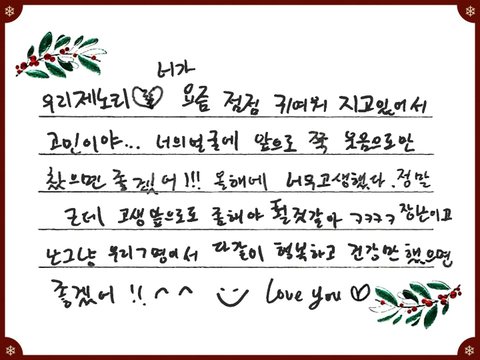 너가
우리제노리♡ 요즘 점점 귀여워 지고있어서
고민이야... 너의얼굴에 앞으로 쭉 웃음으로만
찼으면 좋겠어!!! 올해에 너무고생했다. 정말
근데 고생앞으로도 좀해야 될것같아 ㅋㅋㅋㅋ 장난이고
난그냥 우리7명이서 다같이 행복하고 건강만 했으면
좋겠어 !! ^^ Love you ♡